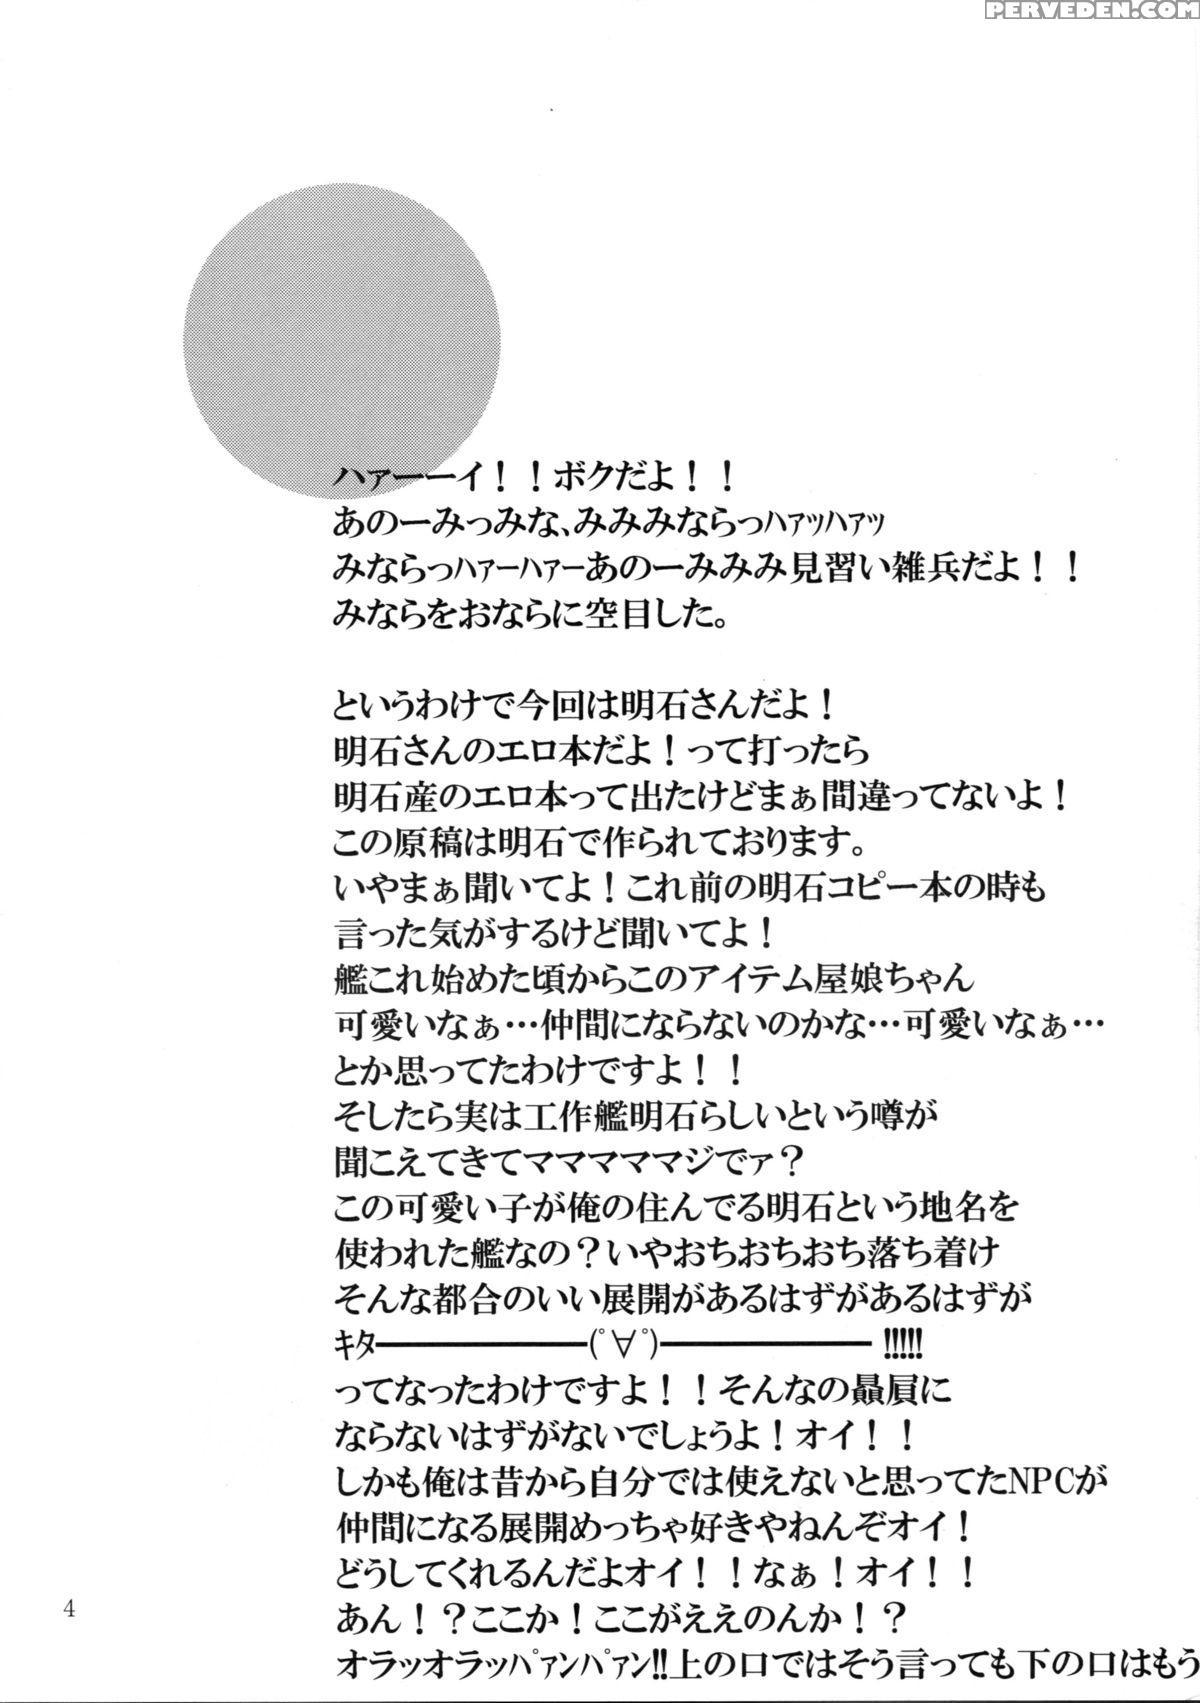 PERVEDEN.COM
ハァーーイ！！ボクだよ！！
あのーみっみな、みみみならっﾊｧｯﾊｧｯ
みならっﾊｧーﾊｧーあのーみみみ見習い雑兵だよ！！
みならをおならに空目した。
というわけで今回は明石さんだよ！
明石さんのエロ本だよ！って打ったら
明石産のエロ本って出たけどまぁ間違ってないよ！
この原稿は明石で作られております。
いやまぁ聞いてよ！これ前の明石コピー本の時も
言った気がするけど聞いてよ！
艦これ始めた頃からこのアイテム屋娘ちゃん
可愛いなぁ…仲間にならないのかな…可愛いなぁ…
とか思ってたわけですよ！！
そしたら実は工作艦明石らしいという噂が
聞こえてきてママママママジでァ？
この可愛い子が俺の住んでる明石という地名を
使われた艦なの？いやおちおちおち落ち着け
そんな都合のいい展開があるはずがあるはずが
ｷﾀ━━━━━━━(ﾟ∀ﾟ)━━━━━━━!!!!!
ってなったわけですよ！！そんなの贔屓に
ならないはずがないでしょうよ！オイ！！
しかも俺は昔から自分では使えないと思ってたNPCが
仲間になる展開めっちゃ好きやねんぞオイ！
どうしてくれるんだよオイ！！なぁ！オイ！！
あん！？ここか！ここがええのんか！？
オラッオラッﾊﾟｧﾝﾊﾟｧﾝ!!上の口ではそう言っても下の口はもう
4